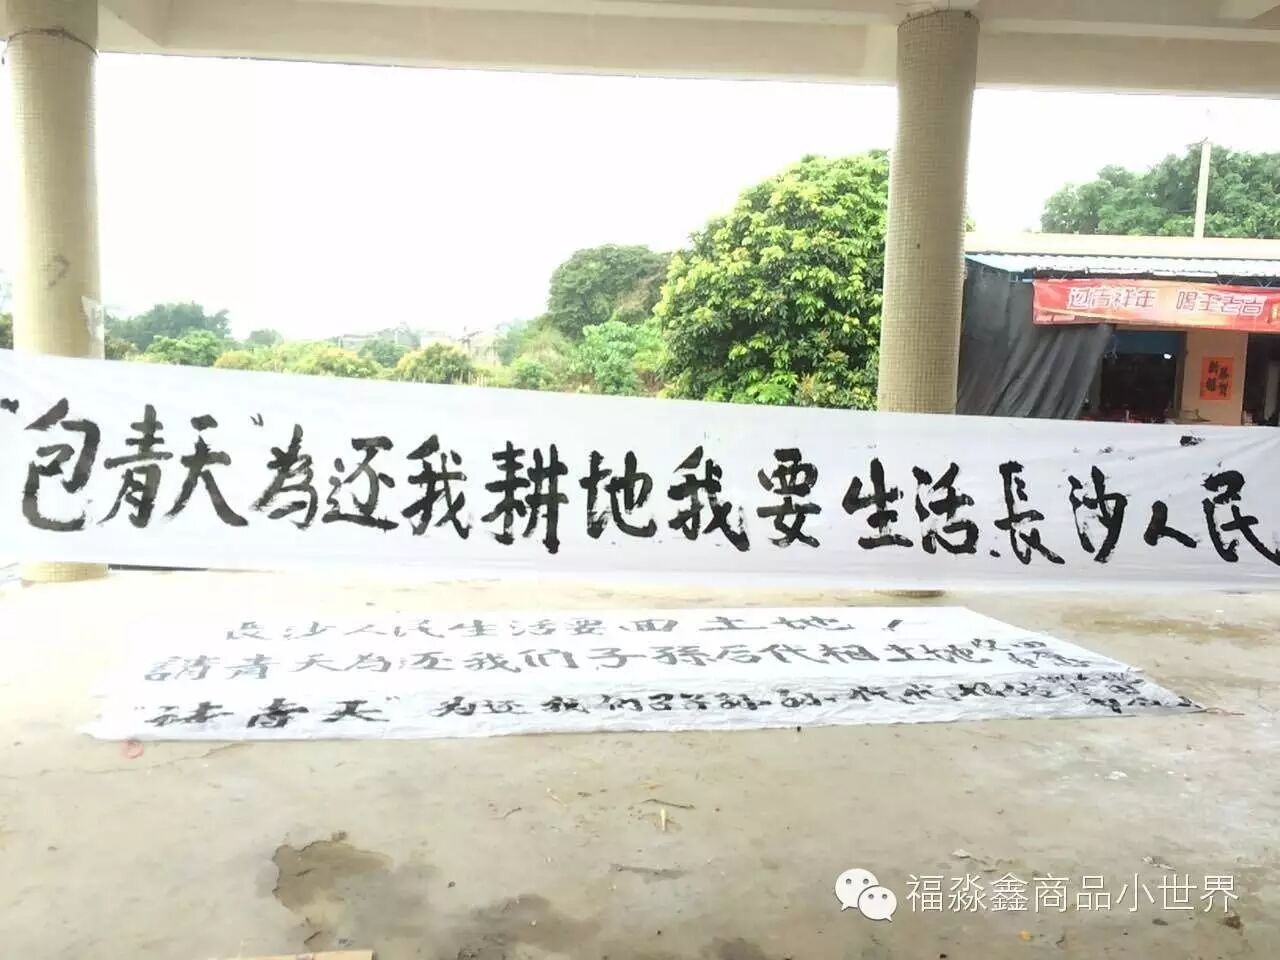 过吉祥年 喝王老吉
恭贺
新禧
"包青天"為还我耕地我要生活長沙人民
長沙人民生活要回土地!
請青天為还我们子孫后代相土地
青天"为还我们子孙
福淼鑫商品小世界